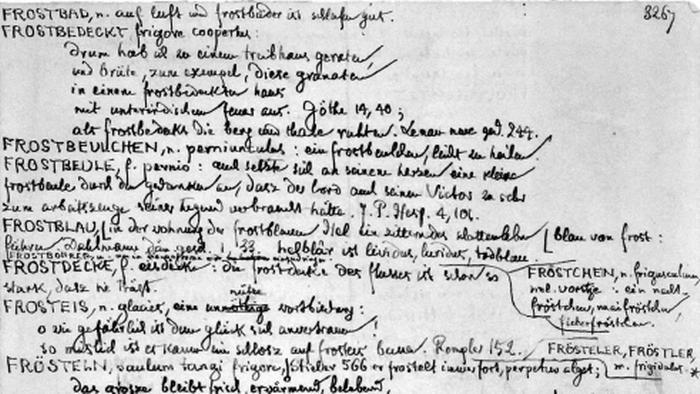 3267
FROSTBAD, n. auf luft und frostbäder ist schlafen gut.
FROSTBEDECKT, frigore coopertus:
drum hab ich in einem treibhaus geraten,
und brüte, zum exempel, diese granaten
in einem frostbedeckten haus
mit unterirdischem feuer aus. Göthe 14, 40;
als frostbedeckt die berg und thale ruhten. Lenau neue ged. 244.
FROSTBEULCHEN, n. perniunculus: ein frostbeulchen, leicht zu heilen.
FROSTBEULE, f. pernio: und setzte sich an seinem herzen eine kleine
frostbeule durch den gedanken an, dasz der lord auch seinen Victor zu sehr
zum arbeitszeuge seiner tugend verbraucht hätte. J. P. Hesp. 4, 101.
FROSTBLAU, in der wohnung der frostblauen Hel ein zitterndes
blau von frost:
Dahlmann dän. gesch. 1, 33. hellblau ist lividus, luridus, todblau.
FROSTBOHRER, n.
FROSTDECKE, f. eisdecke: die frostdecke des flusses ist schon so
stark, dasz sie trägt.
FRÖSTCHEN, n. frigusculum,
fröstchen, maifröstchen,
fieberfröstchen.
FROSTEIS, n. glacies, eine unnöthige vorstbildung:
o wie gefährlich ist dem glück sich anvertrauen!
so mislich ist es kaum ein schlosz auf frosteis bauen. Rompler 152.
FRÖSTELER, FRÖSTLER,
m. frigidulus. *
FRÖSTELN, paulum tangi frigore, Stieler 566 er fröstelt immerfort, perpetuo alget;
das grosze bleibt frisch, erwärmend, belebend,